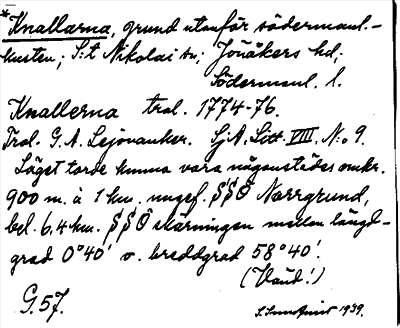 *Knallarna, grund utanför södermanl.-
kusten; S:t Nikolai sn; Jönåkers hd;
Södermanl. l.
Knallerna tral. 1774-76.
Tral. G. A. Lejonanker. SjA, Litt. VIII. N:o 9.
Läget torde kunna vara någonstädes omkr.
900 m. à 1 km. ungef. SSÖ Norrgrund,
bel. 6,4 km. SSÖ skärningen mellan längd-
grad 0°40′ o. breddgrad 58°40′.
(Vänd!)
G. 57.
1939.